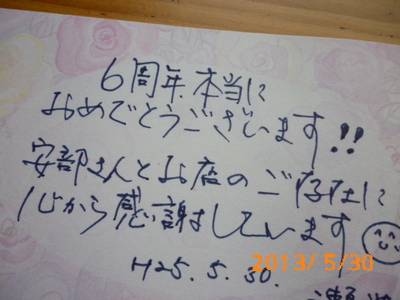 6周年本当に
おめでとうございます!!
安部さんとお店のご存在に
心から感謝しています
H25.5.30.
2013/ 5/30